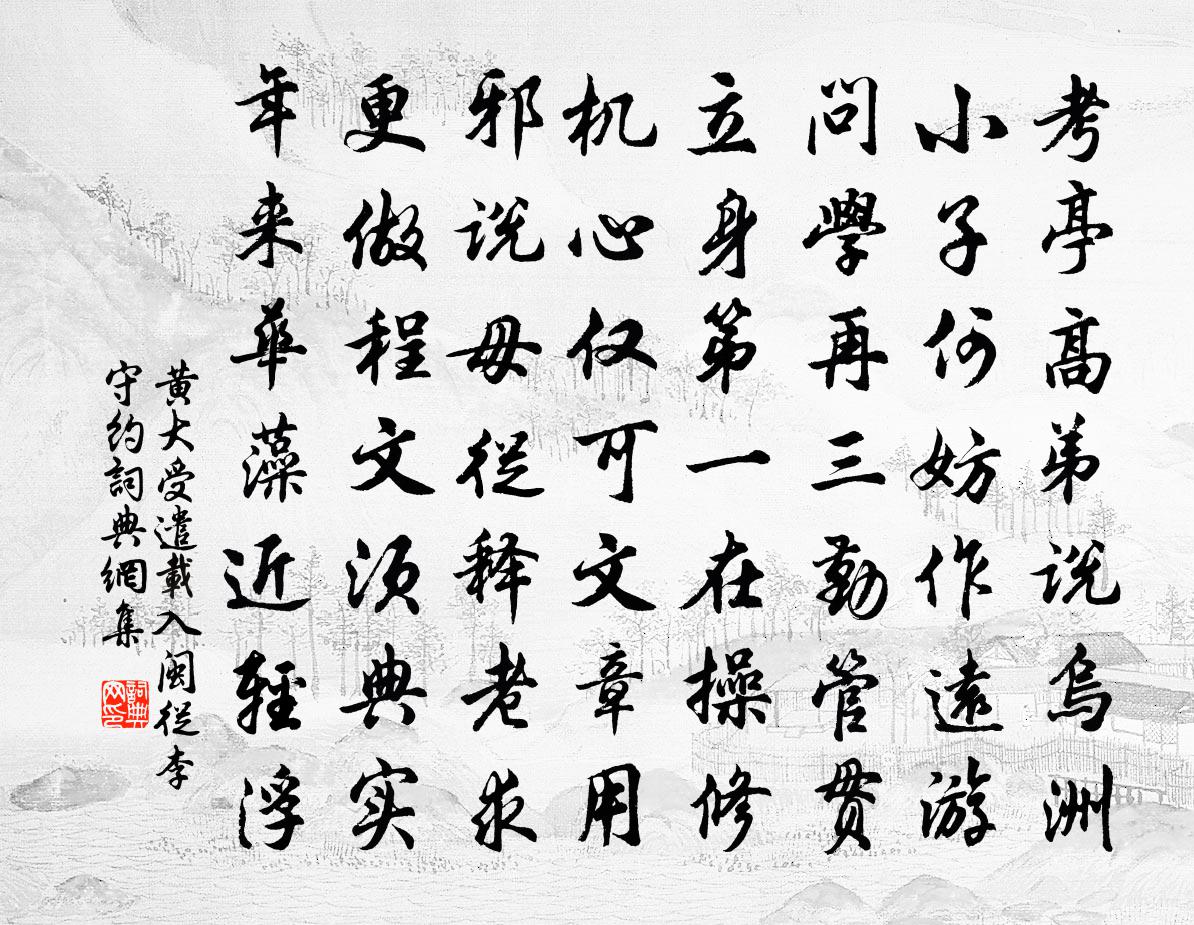 考亭高弟说乌洲
小子何妨作远游
问學再三勤管贯
立身第一在操修
机心仅可文章用
邪说毋从释老求
更做程文须典实
年来华藻近轻浮
黄大受遣載入闽从李
守约詞典網集
詞典
网印